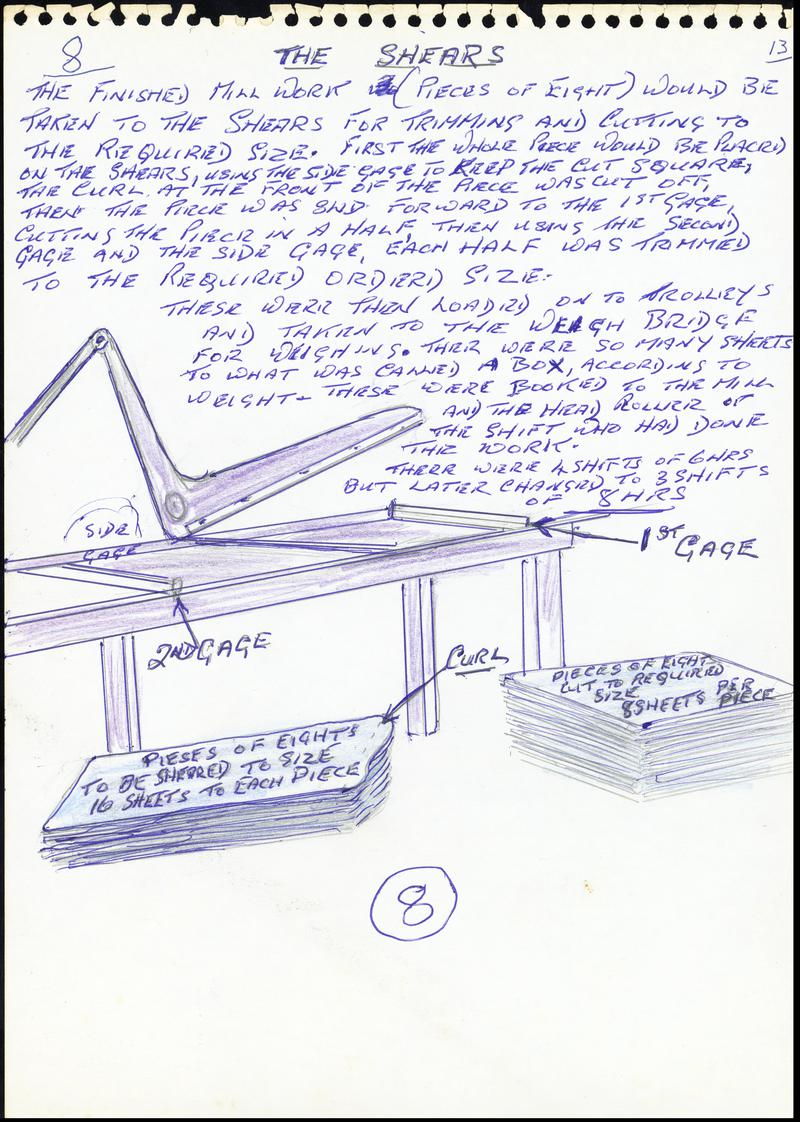 8
THE SHEARS
13
THE FINISHED MILL WORK (PIECES OF EIGHT) WOULD BE
TAKEN TO THE SHEARS FOR TRIMMING AND CUTTING TO
THE REQUIRED SIZE. FIRST THE WHOLE PIECE WOULD BE PLACED
ON THE SHEARS, USING THE SIDE GAGE TO KEEP THE CUT SQUARE,
THE CURL AT THE FRONT OF THE PIECE WAS CUT OFF,
THEN THE PIECE WAS SND FORWARD TO THE 1ST GAGE,
CUTTING THE PIECE IN A HALF, THEN USING THE SECOND
GAGE AND THE SIDE GAGE, EACH HALF WAS TRIMMED
TO THE REQUIRED ORDERED SIZE.
THESE WERE THEN LOADED ON TO TROLLEYS
AND TAKEN TO THE WEIGH BRIDGE
FOR WEIGHING. THER WERE SO MANY SHEETS
TO WHAT WAS CALLED A BOX, ACCORDING TO
WEIGHT - THESE WERE BOOKED TO THE MILL
AND THE HEAD ROLLER OF
THE SHIFT WHO HAD DONE
THE WORK.
THERE WERE 4 SHIFTS OF 6 HRS
BUT LATER CHANGED TO 3 SHIFTS
OF 8 HRS
SIDE
GAGE
1ST GAGE
2ND GAGE
CURL
PIECES OF EIGHT
CUT TO REQUIRED
SIZE
8 SHEETS PER
PIECE
PIESES OF EIGHTS
TO BE SHEARED TO SIZE
16 SHEETS TO EACH PIECE
8